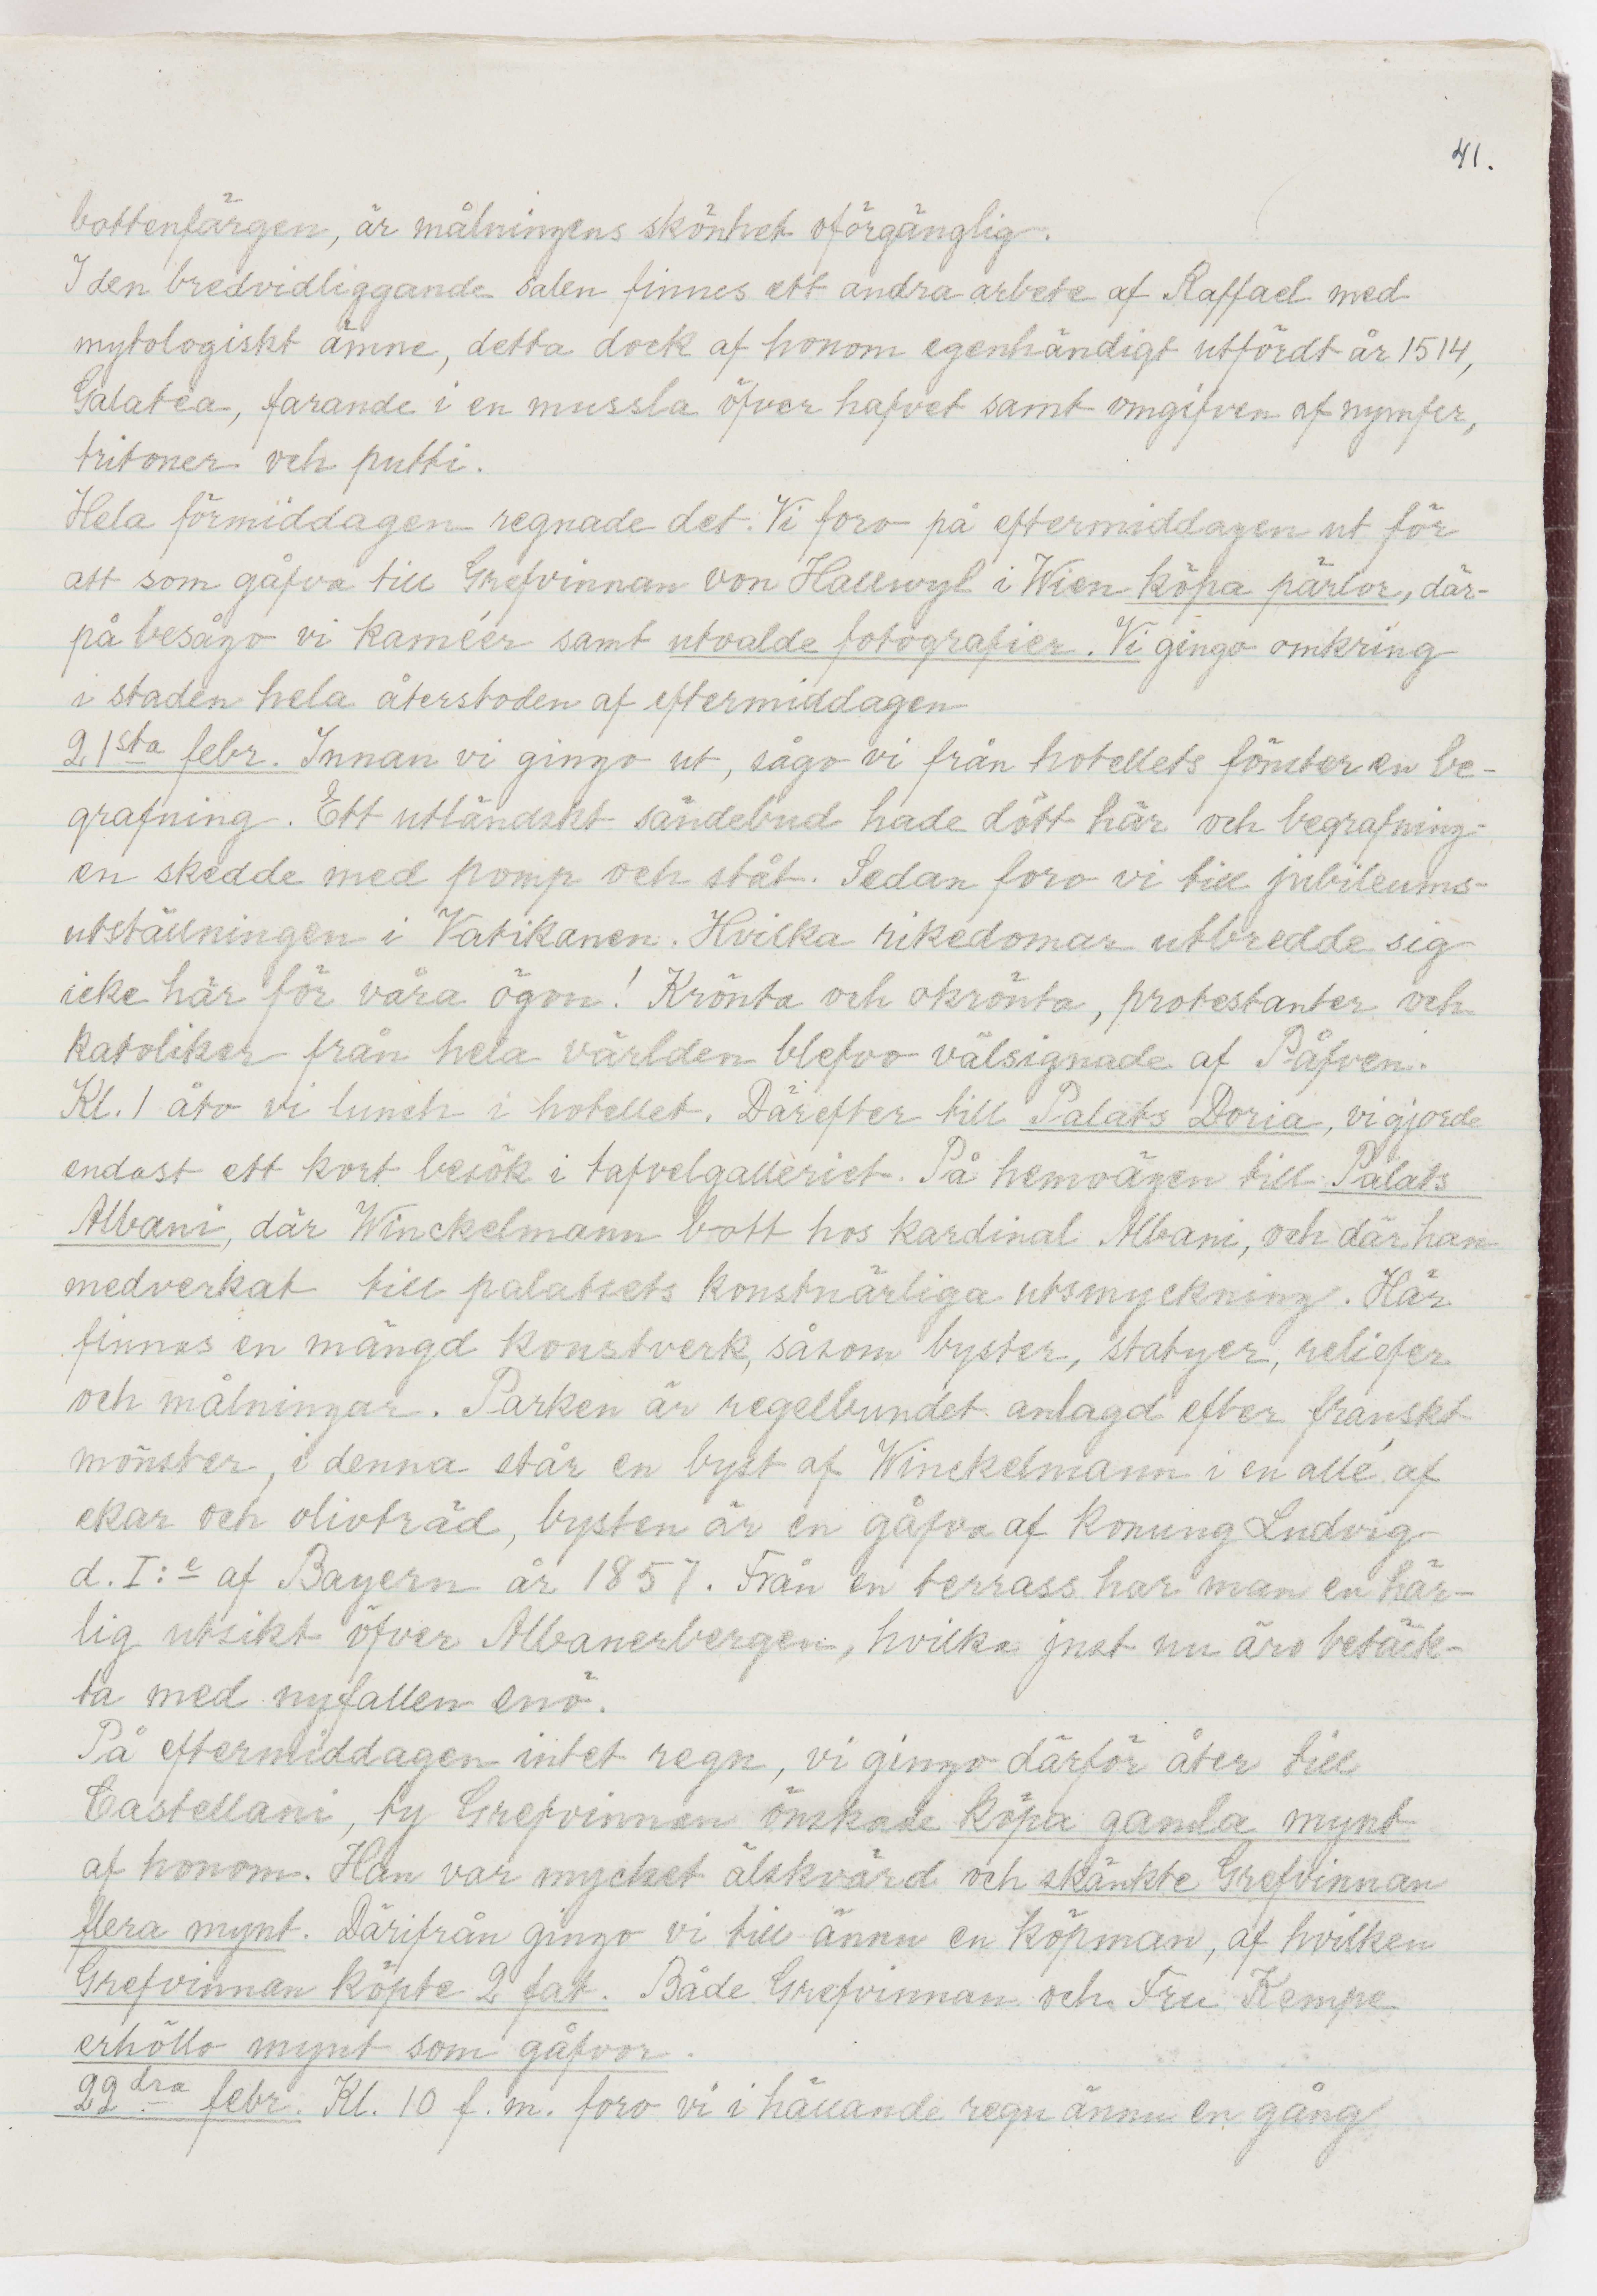 41.
bottenfärgen, är målningens skönhet oförgänglig.
I den bredvidliggande salen finnes ett andra arbete af Raffael med
mytologiskt ämne, detta dock af honom egenhändigt utfördt år 1514,
Galatéa, farande i en mussla öfver hafvet samt omgifven af nymfer,
tritoner och putti.
Hela förmiddagen regnade det. Vi foro på eftermiddagen ut för
att som gåfva till Grefvinnan von Hallwyl i Wien köpa pärlor, där-
på besågo vi kaméer samt utvalde fotografier. Vi gingo omkring
i staden hela återstoden af eftermiddagen
21sta febr. Innan vi gingo ut, sågo vi från hotellets fönster en be-
grafning. Ett utländskt sändebud hade dött här och begrafning-
en skedde med pomp och ståt. Sedan foro vi till jubileums-
utställningen i Vatikanen. Hvilka rikedomar utbredde sig
icke här för våra ögon! Krönta och okrönta, protestanter och
katoliker från hela världen blefvo välsignade af Påfven.
Kl. 1 åto vi lunch i hotellet. Därefter till Palats Doria, vi gjorde
endast ett kort besök i tafvelgalleriet. På hemvägen till Palats
Albani, där Winckelmann bott hos kardinal Albani, och där han
medverkat till palatsets konstnärliga utsmyckning. Här
finnas en mängd konstverk, såsom byster, statyer, reliefer
och målningar. Parken är regelbundet anlagd efter franskt
mönster, i denna står en byst af Winckelmann i en allé af
ekar och olivträd, bysten är en gåfva af konung Ludvig
d. I:e af Bayern år 1857. Från en terrass har man en här-
lig utsikt öfver Albanerbergen, hvilka just nu äro betäck-
ta med nyfallen snö.
På eftermiddagen intet regn, vi gingo därför åter till
Castellani, ty Grefvinnan önskade köpa gamla mynt
af honom. Han var mycket älskvärd och skänkte Grefvinnan
flera mynt. Därifrån gingo vi till ännu en köpman, af hvilken
Grefvinnan köpte 2 fat. Både Grefvinnan och Fru Kempe
erhöllo mynt som gåfvor.
22dra febr. Kl. 10 f. m. foro vi i hällande regn ännu en gång